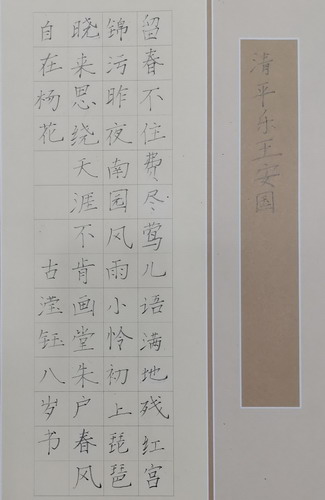 清平乐王安国
留春不住费尽莺儿语满地残红宫
锦污昨夜南园风雨小怜初上琵琶
晓来思绕天涯不肯画堂朱户春风
自在杨花 古滢钰八岁书